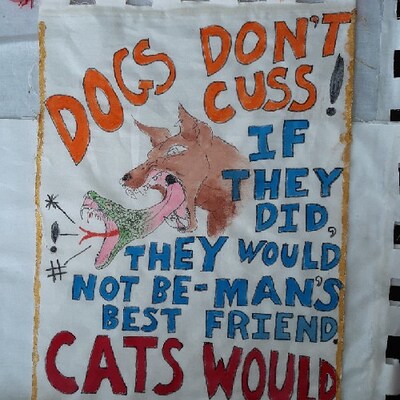 DOGS DON'T
CUSS!
IF
THEY
DID,
THEY WOULD
NOT BE-MAN'S
BEST FRIEND.
CATS WOULD
* ! #